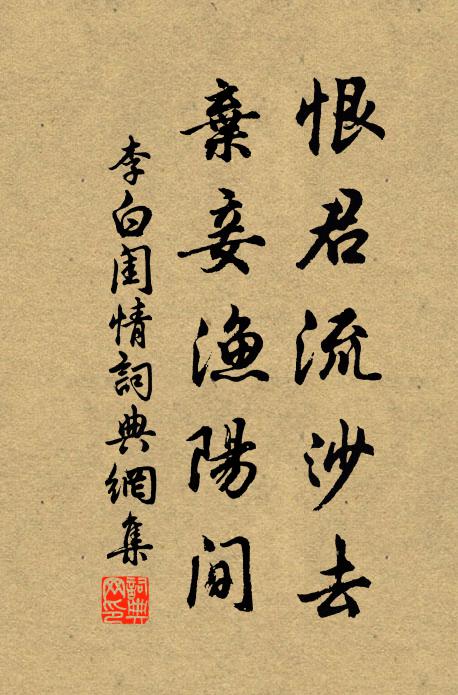 恨君流沙去
棄妾漁陽間
李白閨情詞典網集
詞典網印